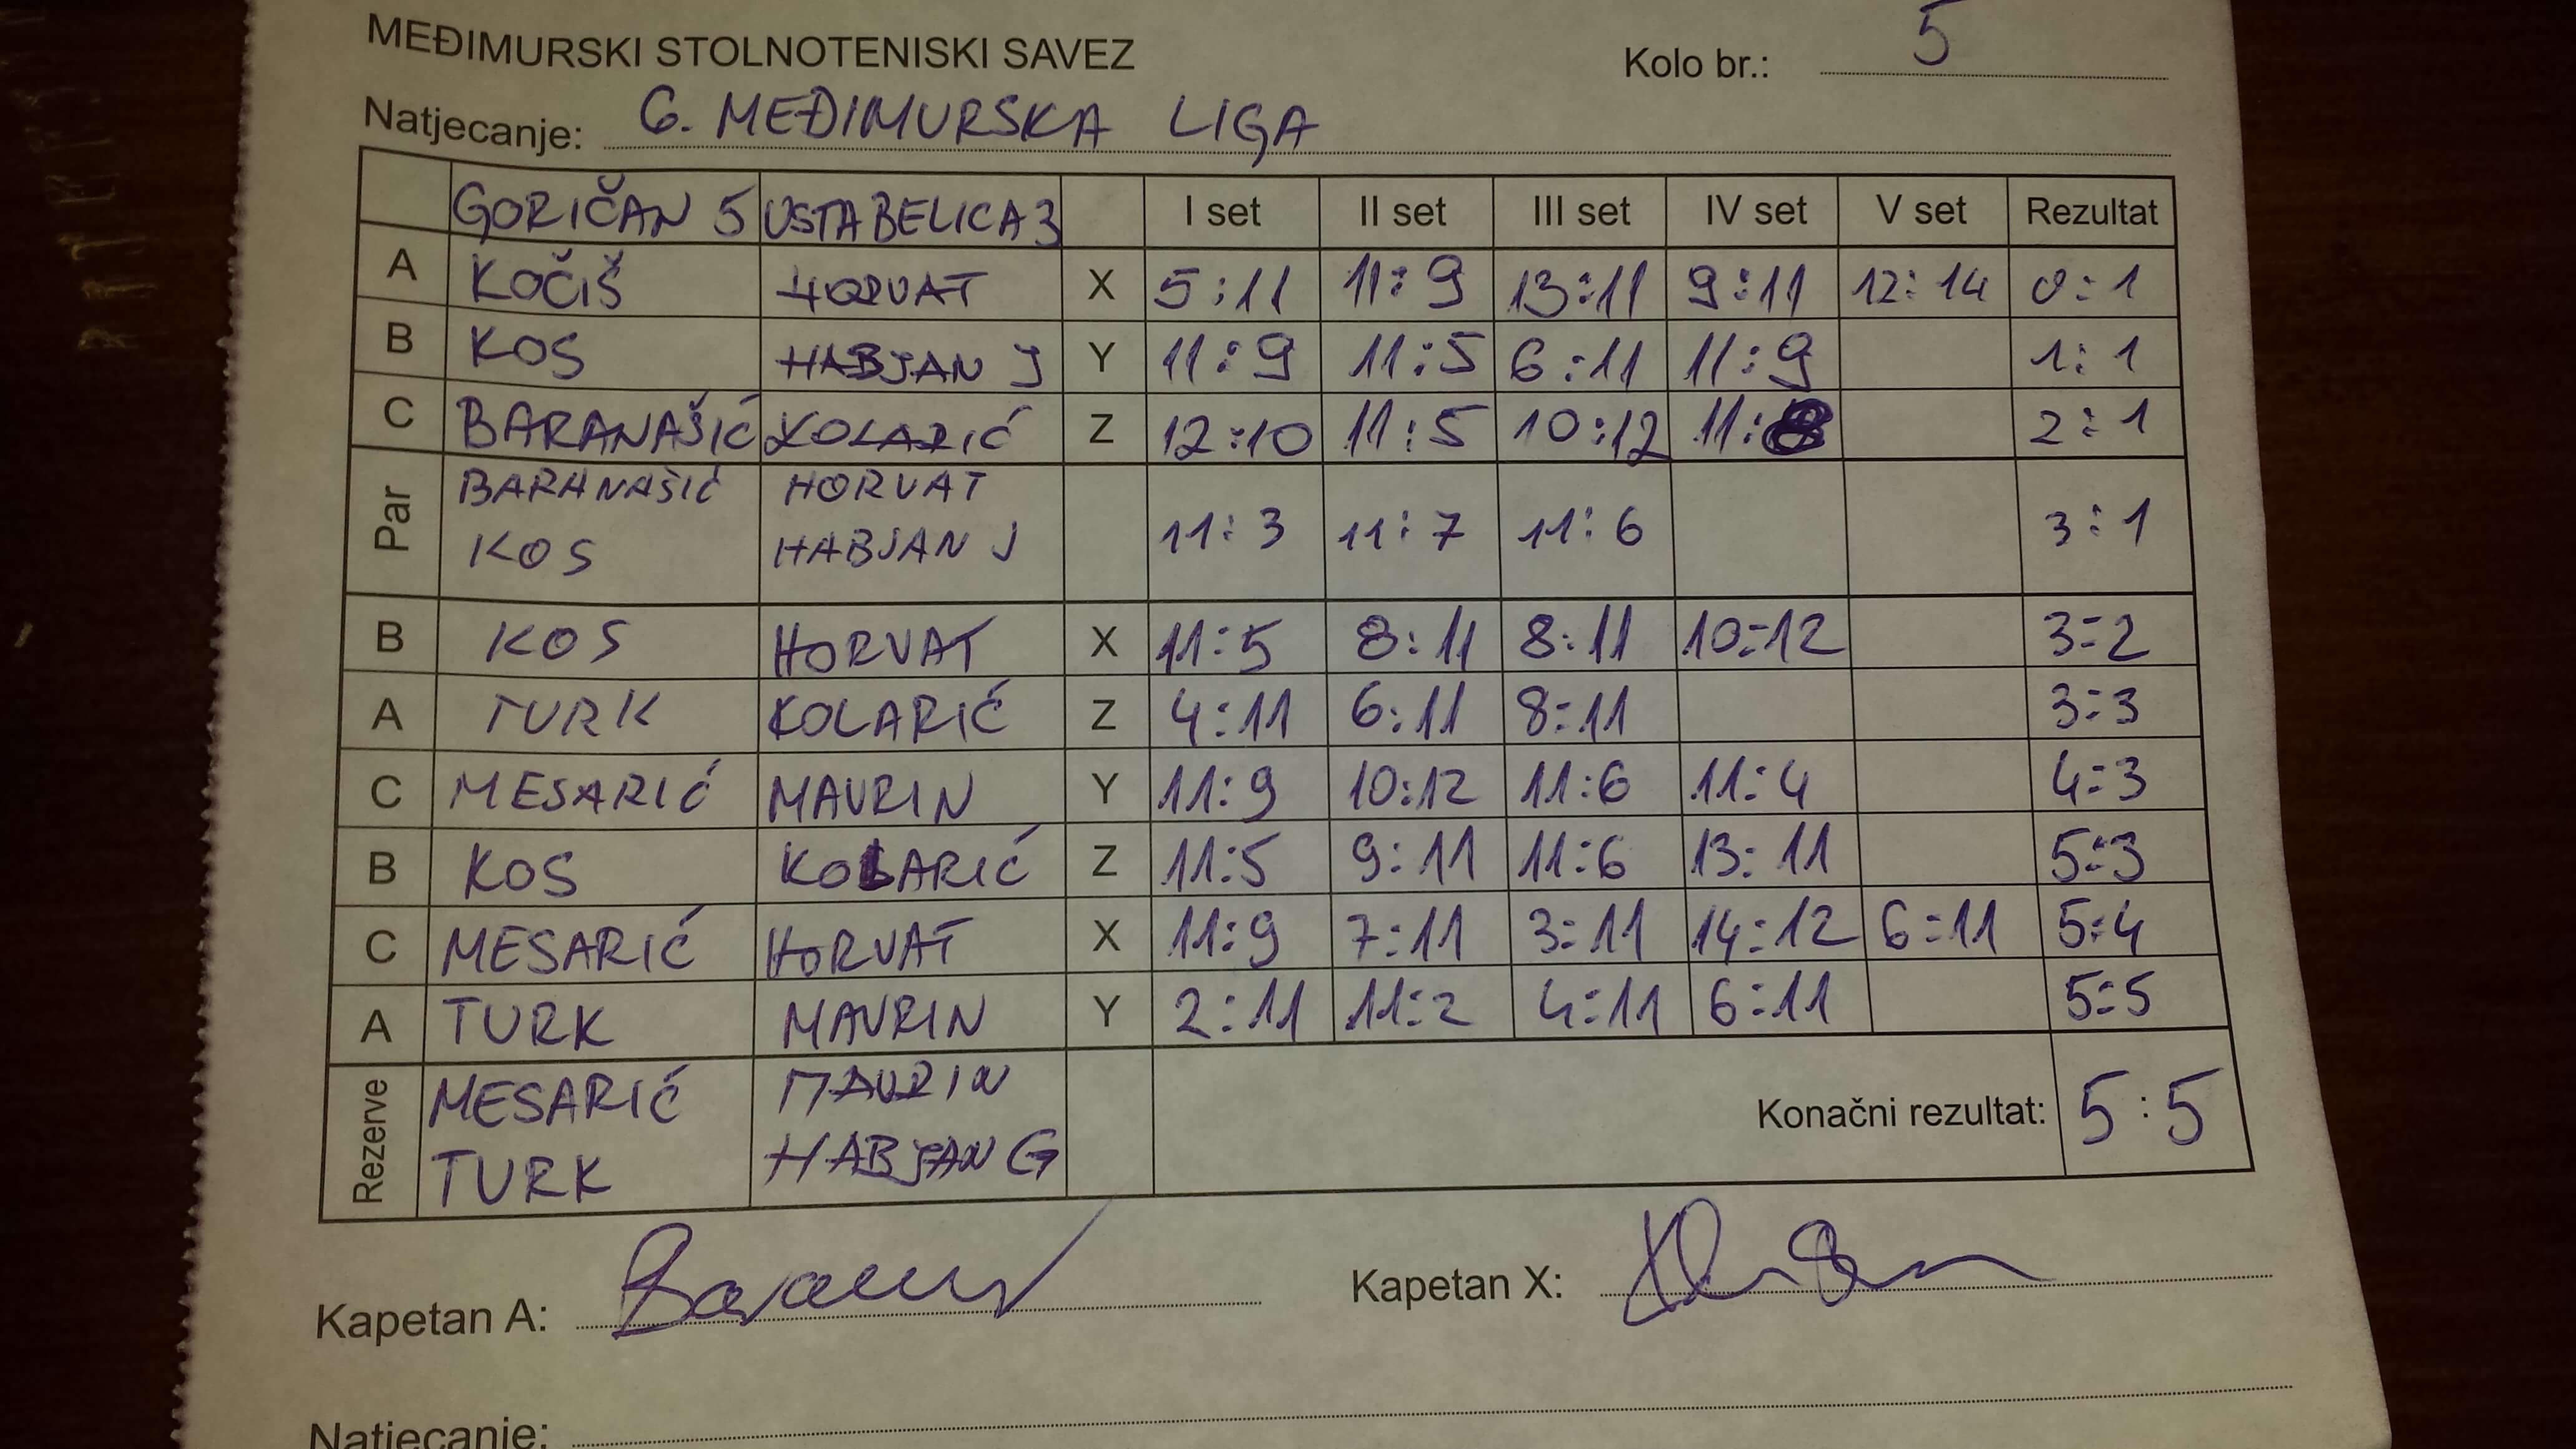 MEĐIMURSKI STOLNOTENISKI SAVEZ Kolo br.: 5
Natjecanje: 6. MEĐIMURSKA LIGA
GORIČAN 5 USTABELICA 3 I set II set III set IV set V set Rezultat
A KOČIŠ HORVAT X 5:11 11:9 13:11 9:11 12:14 0:1
B KOS HABJAN J Y 11:9 11:5 6:11 11:9 1:1
C BARANAŠIĆ KOLARIĆ Z 12:10 11:5 10:12 11:8 2:1
Par BARANAŠIĆ HORVAT
KOS HABJAN J 11:3 11:7 11:6 3:1
B KOS HORVAT X 11:5 8:11 8:11 10:12 3:2
A TURK KOLARIĆ Z 4:11 6:11 8:11 3:3
C MESARIĆ MAVRIN Y 11:9 10:12 11:6 11:4 4:3
B KOS KOLARIĆ Z 11:5 9:11 11:6 13:11 5:3
C MESARIĆ HORVAT X 11:9 7:11 3:11 14:12 6:11 5:4
A TURK MAVRIN Y 2:11 11:2 4:11 6:11 5:5
Rezerve MESARIĆ MAVRIN
TURK HABJAN G Konačni rezultat: 5:5
Kapetan A: Kapetan X:
Natjecanje: